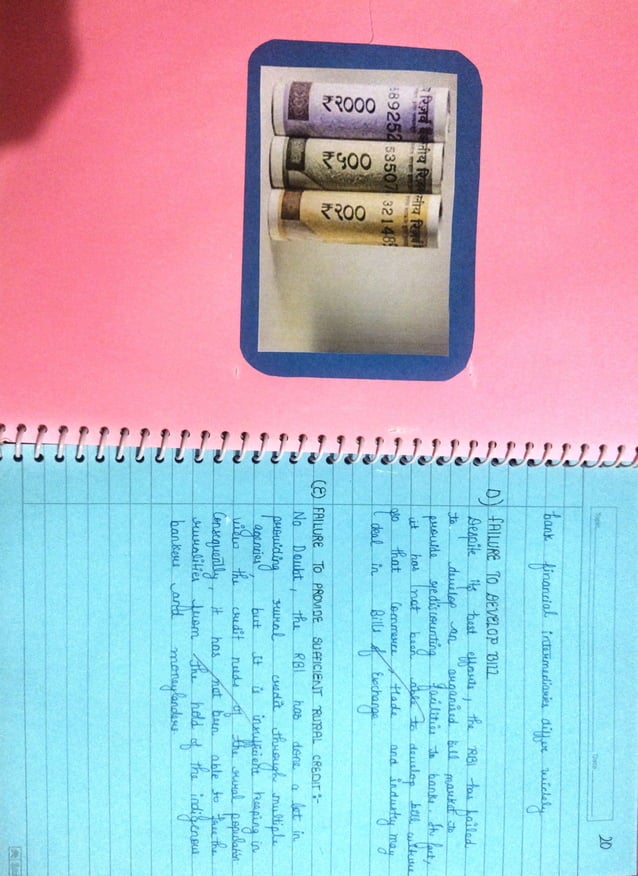 ₹२०००
892252
रिज़र्व
₹५००
53507
₹२००
32148
20
bank financial intermediaries differ widely
D) FAILURE TO DEVELOP BILL
Despite its best efforts, the RBI has failed
to develop an organised bill market to
provide rediscounting facilities to banks. In fact,
it has not been able to develop bill culture
so that Commerce, trade and industry may
deal in Bills of Exchange
(E) FAILURE TO PROVIDE SUFFICIENT RURAL CREDIT:-
No Doubt, the RBI has done a lot in
providing rural credit through multiple
agencies, but it is insufficient keeping in
view the credit needs of the rural population
Consequently, it has not been able to free the
ruralities from the hold of the indigenous
bankers and moneylenders